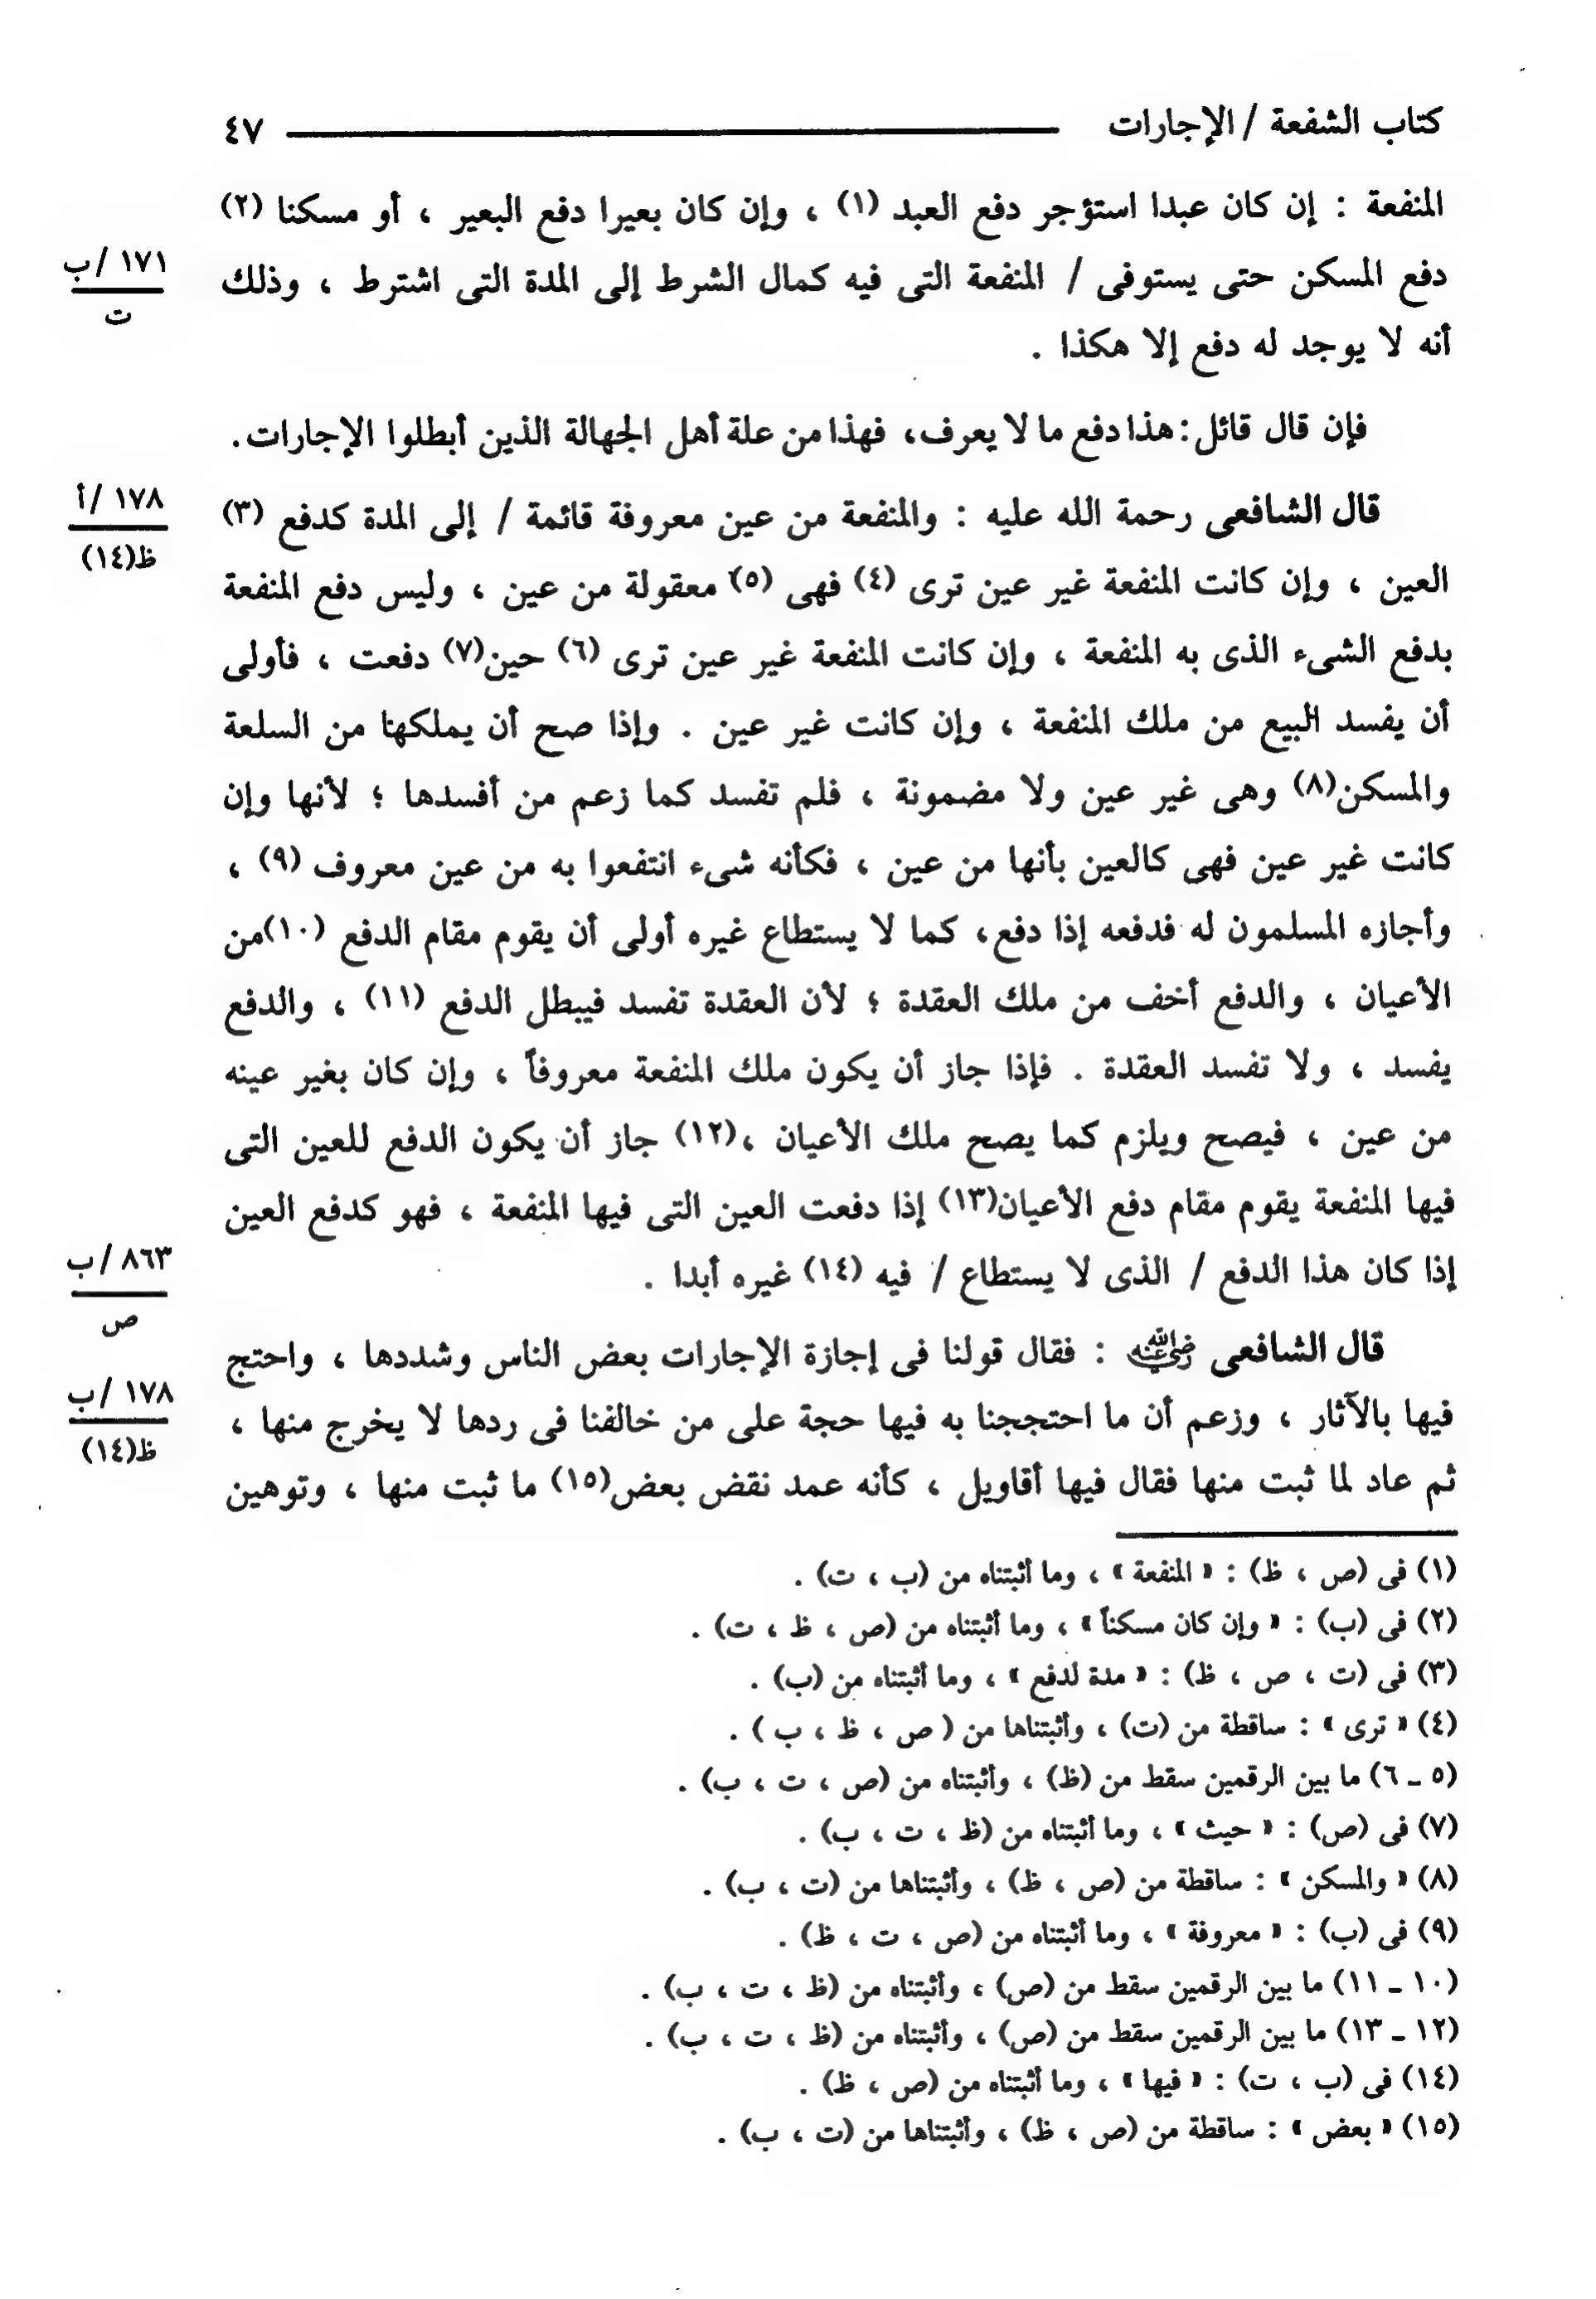 كتاب الشفعة / الإجارات ٤٧
المنفعة : إن كان عبدا استؤجر دفع العبد (١) ، وإن كان بعيرا دفع البعير ، أو مسكنا (٢)
دفع المسكن حتى يستوفى / المنفعة التى فيه كمال الشرط إلى المدة التى اشترط ، وذلك
١٧١ /ب
ت
أنه لا يوجد له دفع إلا هكذا .
فإن قال قائل: هذا دفع ما لا يعرف، فهذا من علة أهل الجهالة الذين أبطلوا الإجارات.
قال الشافعى رحمة الله عليه : والمنفعة من عين معروفة قائمة / إلى المدة كدفع (٣)
١٧٨ /أ
ظ(١٤)
العين ، وإن كانت المنفعة غير عين ترى (٤) فهى (٥) معقولة من عين ، وليس دفع المنفعة
بدفع الشىء الذى به المنفعة ، وإن كانت المنفعة غير عين ترى (٦) حين(٧) دفعت ، فأولى
أن يفسد البيع من ملك المنفعة ، وإن كانت غير عين . وإذا صح أن يملكها من السلعة
والمسكن(٨) وهى غير عين ولا مضمونة ، فلم تفسد كما زعم من أفسدها ؛ لأنها وإن
كانت غير عين فهى كالعين بأنها من عين ، فكأنه شىء انتفعوا به من عين معروف (٩) ،
وأجازه المسلمون له فدفعه إذا دفع، كما لا يستطاع غيره أولى أن يقوم مقام الدفع (١٠)من
الأعيان ، والدفع أخف من ملك العقدة ؛ لأن العقدة تفسد فيبطل الدفع (١١) ، والدفع
يفسد ، ولا تفسد العقدة . فإذا جاز أن يكون ملك المنفعة معروفاً ، وإن كان بغير عينه
من عين ، فيصح ويلزم كما يصح ملك الأعيان ،(١٢) جاز أن يكون الدفع للعين التى
فيها المنفعة يقوم مقام دفع الأعيان(١٣) إذا دفعت العين التى فيها المنفعة ، فهو كدفع العين
إذا كان هذا الدفع / الذى لا يستطاع / فيه (١٤) غيره أبدا .
٨٦٣ /ب
ص
قال الشافعى رضي الله عنه : فقال قولنا فى إجازة الإجارات بعض الناس وشددها ، واحتج
١٧٨ /ب
ظ(١٤)
فيها بالآثار ، وزعم أن ما احتججنا به فيها حجة على من خالفنا فى ردها لا يخرج منها ،
ثم عاد لما ثبت منها فقال فيها أقاويل ، كأنه عمد نقض بعض(١٥) ما ثبت منها ، وتوهين
(١) فى (ص ، ظ) : « المنفعة » ، وما أثبتناه من (ب ، ت) .
(٢) فى (ب) : « وإن كان مسكناً » ، وما أثبتناه من (ص ، ظ ، ت) .
(٣) فى (ت ، ص ، ظ) : « مدة لدفع » ، وما أثبتناه من (ب) .
(٤) « ترى » : ساقطة من (ت) ، وأثبتناها من ( ص ، ظ ، ب ) .
(٥ ـ ٦) ما بين الرقمين سقط من (ظ) ، وأثبتناه من (ص ، ت ، ب) .
(٧) فى (ص) : « حيث » ، وما أثبتناه من (ظ ، ت ، ب) .
(٨) « والمسكن » : ساقطة من (ص ، ظ) ، وأثبتناها من (ت ، ب) .
(٩) فى (ب) : « معروفة » ، وما أثبتناه من (ص ، ت ، ظ) .
(١٠ ـ ١١) ما بين الرقمين سقط من (ص) ، وأثبتناه من (ظ ، ت ، ب) .
(١٢ ـ ١٣) ما بين الرقمين سقط من (ص) ، وأثبتناه من (ظ ، ت ، ب) .
(١٤) فى (ب ، ت) : « فيها » ، وما أثبتناه من (ص ، ظ) .
(١٥) « بعض » : ساقطة من (ص ، ظ) ، وأثبتناها من (ت ، ب) .